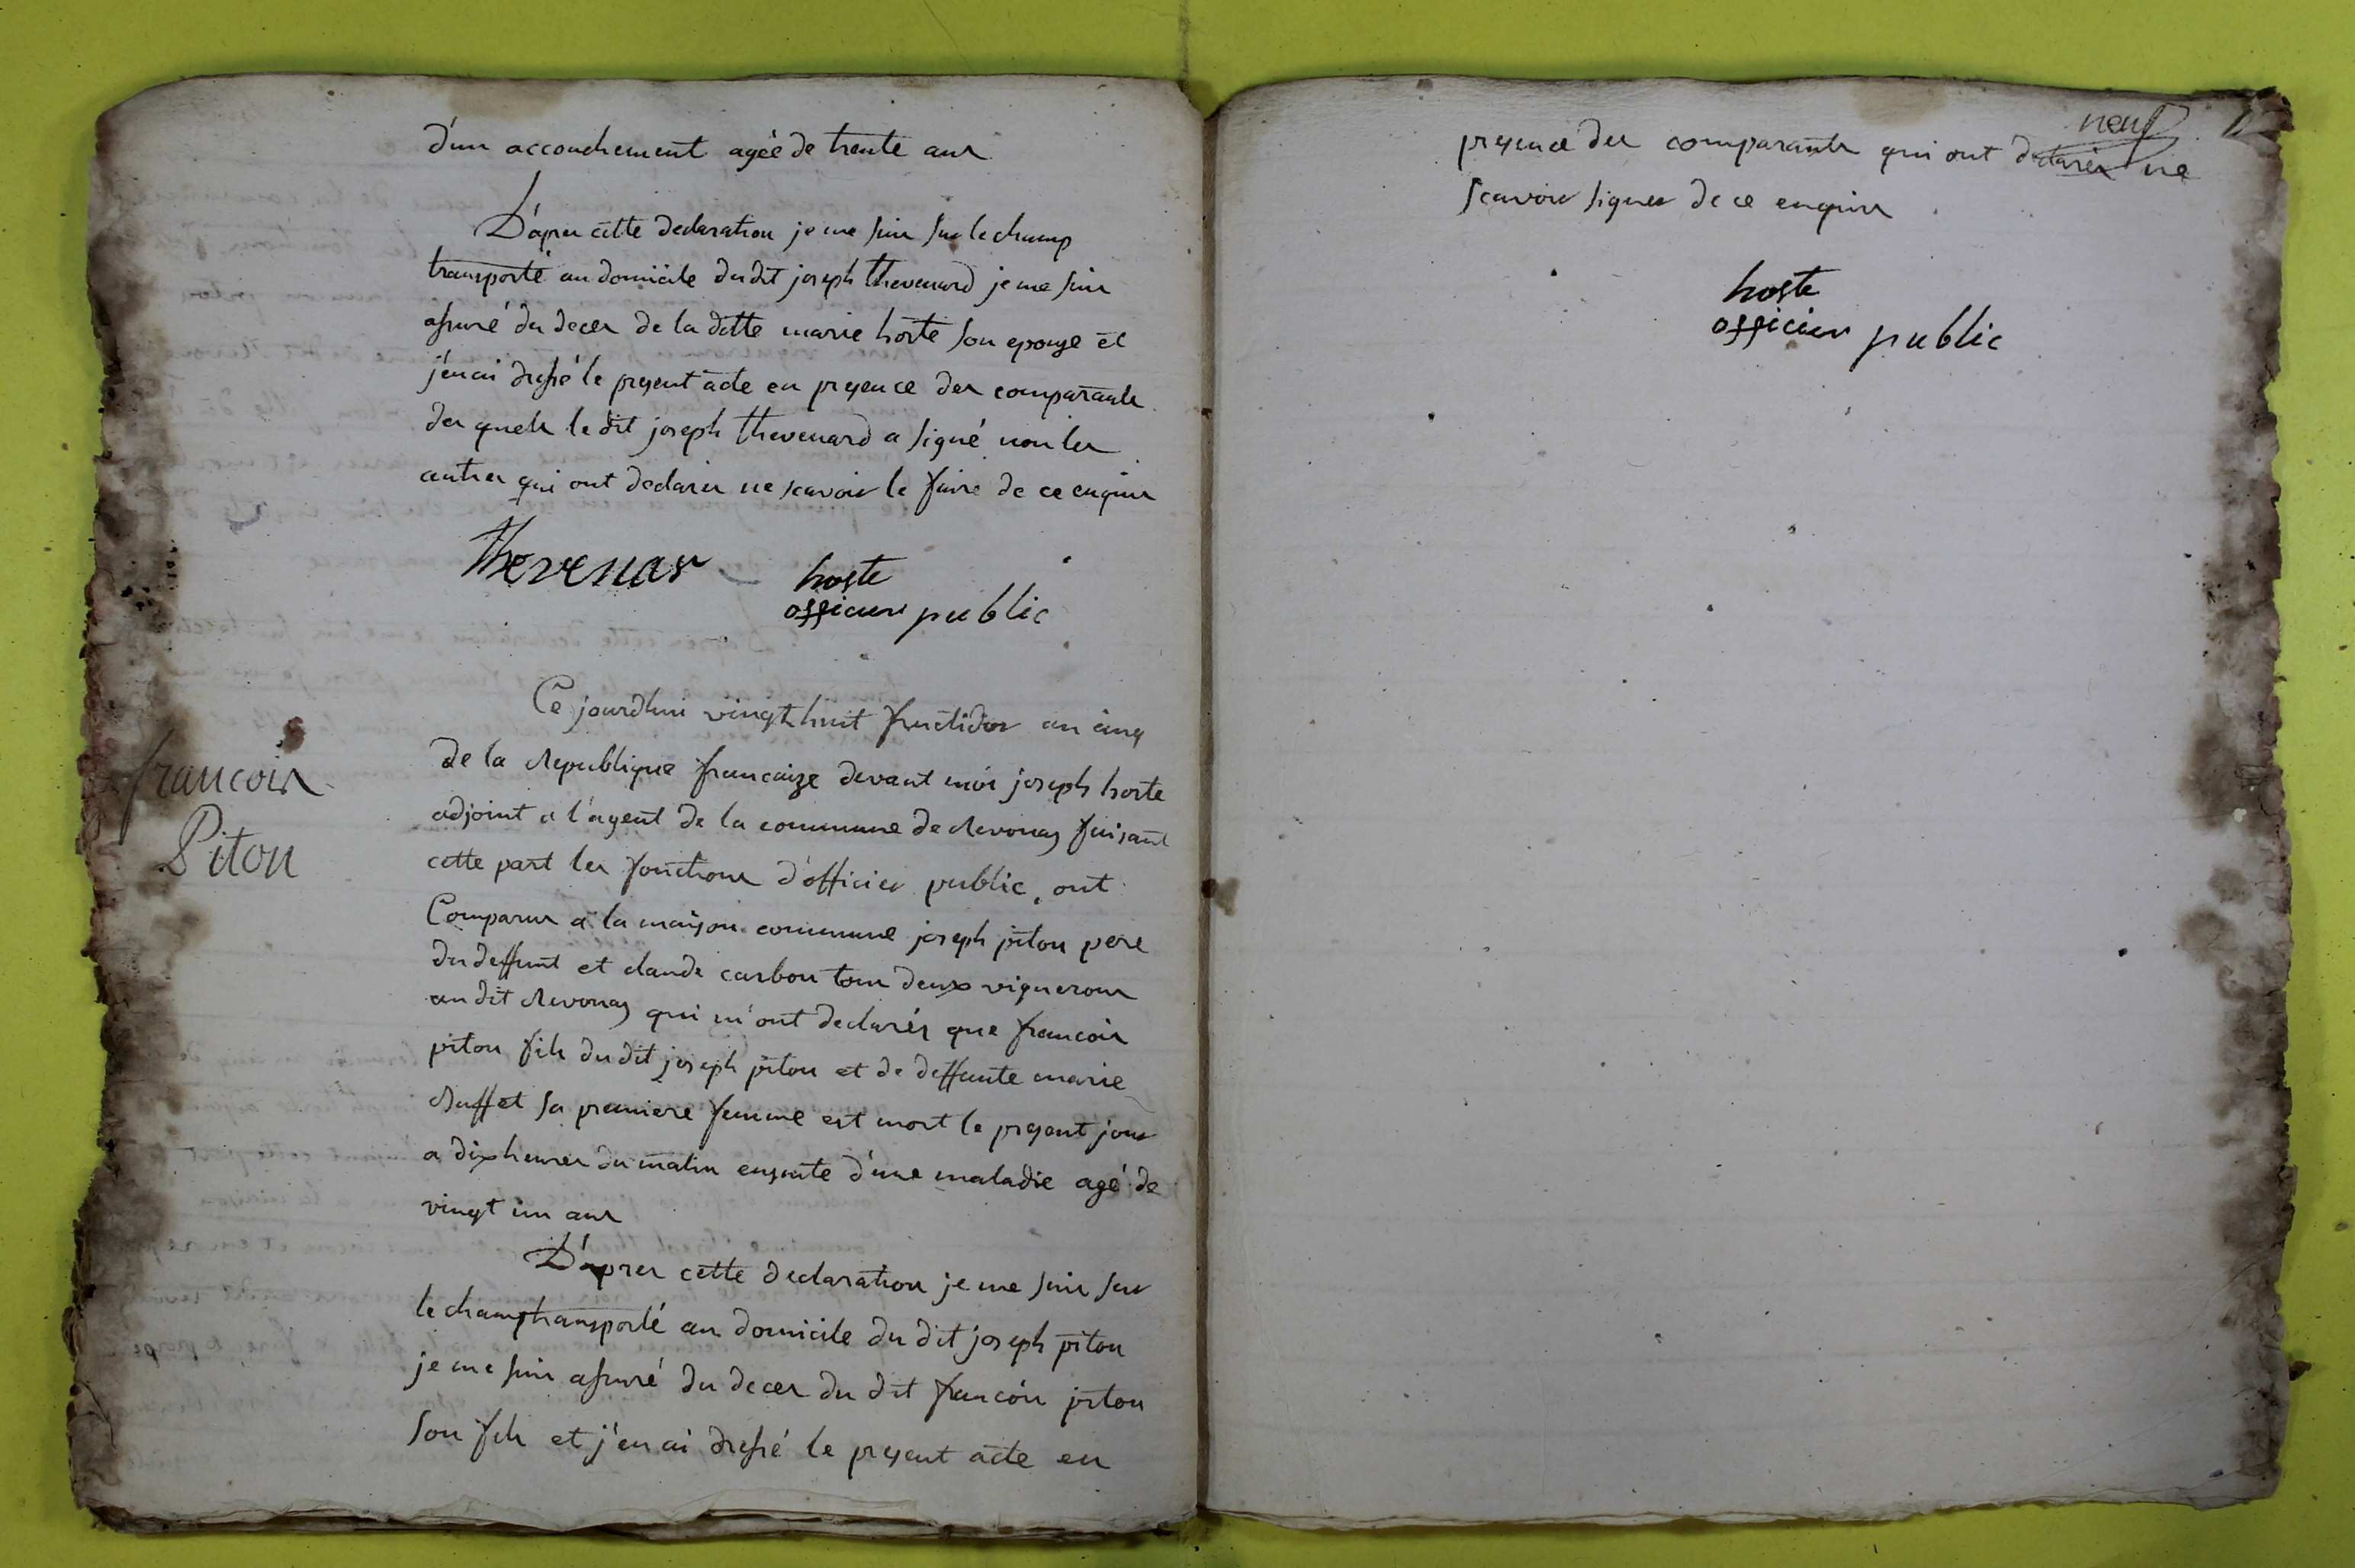 d'un accouchement agée de trente ans
D'apres cette declaration je me suis sur le champ
transporté au domicile du dit joseph thevenard je me suis
assuré du deces de la ditte marie hoste son epouze et
j'en ai dressé le present acte en presence des comparants
des quels le dit joseph thevenard a signé non les
autres qui ont declarer ne scavoir le faire de ce enquis
thevenar
hoste
officier public
Ce jourdhui vingt huit fructidor an cinq
de la Republique francaize devant moi joseph hoste
adjoint a l'agent de la commune de Revonas faisant
cette part les fonctions d'officier public, ont
francois
Piton
Comparus a la maison commune joseph piton pere
du deffunt et claude carbon tous deux vignerons
au dit Revonas qui m'ont declarés que francois
piton fils du dit joseph piton et de deffunte marie
Ruffet sa premiere femme est mort le present jour
a dix heures du matin ensuite d'une maladie agé de
vingt un ans
D'apres cette declaration je me suis sur
le champ transporté au domicile du dit joseph piton
je me suis assuré du deces du dit francois piton
son fils et j'en ai dressé le present acte en
neuf
presence des comparants qui ont declarer ne
scavoir signer de ce enquis
hoste
officier public